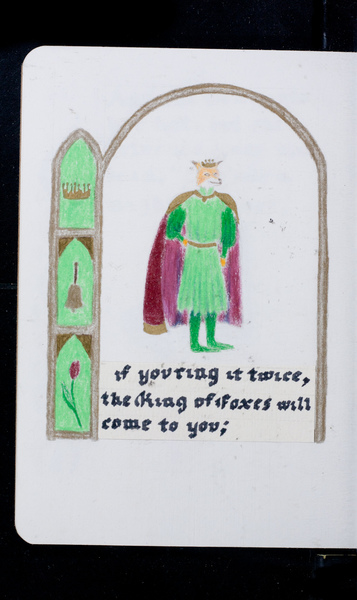 if you ring it twice,
the King of Foxes will
come to you;